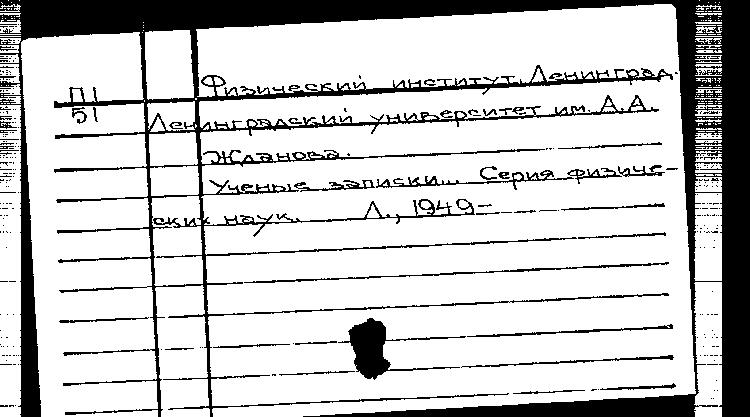 П1 Физический институт. Ленинград.
51 Ленинградский университет им. А.А.
Жданова.
Ученые записки... Серия физиче-
ских наук. Л., 1949-